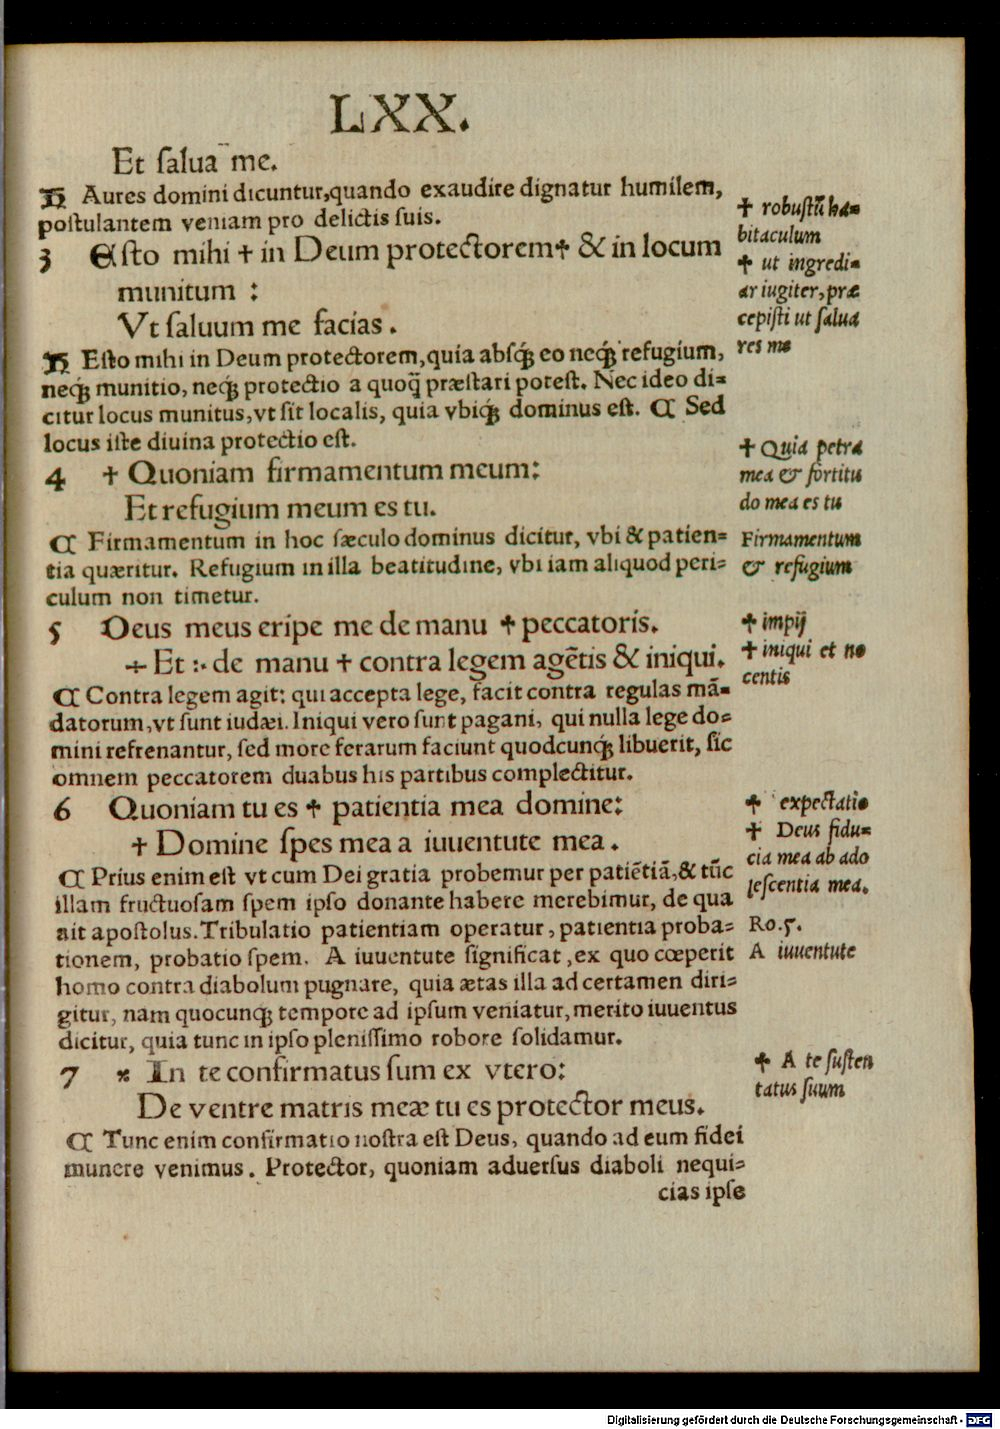 LXX.
Et ſalua me.
H Aures domini dicuntur,quando exaudire dignatur humilem,
poſtulantem veniam pro delictis ſuis.
3 Eſto mihi ✝ in Deum protectorem✝ & in locum
munitum :
Vt ſaluum me facias.
H Eſto mihi in Deum protectorem,quia abſqꝫ eo neqꝫ refugium,
neqꝫ munitio, neqꝫ protectio a quoq̃ præſtari poteſt. Nec ideo di⸗
citur locus munitus,vt ſit localis, quia vbiqꝫ dominus eſt. ¶ Sed
locus iſte diuina protectio eſt.
4 ✝ Quoniam firmamentum meum:
Et refugium meum es tu.
¶ Firmamentum in hoc ſæculo dominus dicitur, vbi & patien⸗
tia quæritur. Refugium in illa beatitudine, vbi iam aliquod peri⸗
culum non timetur.
5 Deus meus eripe me de manu ✝ peccatoris.
÷ Et :· de manu ✝ contra legem agẽtis & iniqui.
¶ Contra legem agit: qui accepta lege, facit contra regulas mã⸗
datorum,vt ſunt iudæi. Iniqui vero ſunt pagani, qui nulla lege do⸗
mini refrenantur, ſed more ferarum faciunt quodcunqꝫ libuerit, ſic
omnem peccatorem duabus his partibus complectitur.
6 Quoniam tu es ✝ patientia mea domine:
✝ Domine ſpes mea a iuuentute mea.
¶ Prius enim eſt vt cum Dei gratia probemur per patiẽtiã,& tũc
illam fructuoſam ſpem ipſo donante habere merebimur, de qua
ait apoſtolus. Tribulatio patientiam operatur, patientia proba⸗
tionem, probatio ſpem. A iuuentute ſignificat, ex quo cœperit
homo contra diabolum pugnare, quia ætas illa ad certamen diri⸗
gitur, nam quocunqꝫ tempore ad ipſum veniatur, merito iuuentus
dicitur, quia tunc in ipſo pleniſſimo robore ſolidamur.
7 ※ In te confirmatus ſum ex vtero:
De ventre matris meæ tu es protector meus.
¶ Tunc enim confirmatio noſtra eſt Deus, quando ad eum fidei
munere venimus. Protector, quoniam aduerſus diaboli nequi⸗
cias ipſe
✝ robuſtũ ha⸗
bitaculum
✝ ut ingredi⸗
ar iugiter, præ
cepiſti ut ſalua
res me
✝ Quia petra
mea & fortitu
do mea es tu
Firmamentum
& refugium
✝ impij
✝ iniqui et no
centis
✝ expectatio
✝ Deus fidu⸗
cia mea ab ado
leſcentia mea.
Ro.5.
A iuuentute
✝ A te ſuſten
tatus ſuum
Digitalisierung gefördert durch die Deutsche Forschungsgemeinschaft - DFG